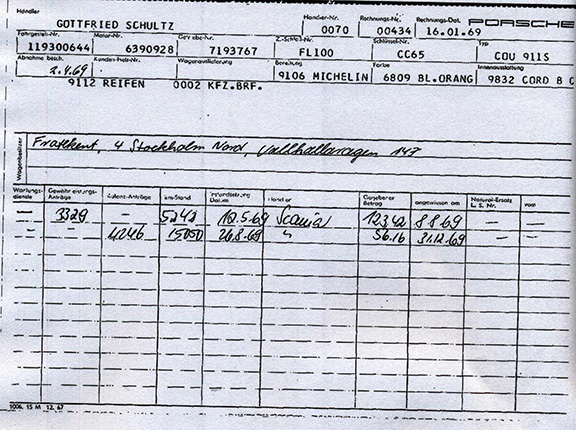 Händler Händler-Nr. Rechnungs-Nr. Rechnungs-Dat. PORSCHE
GOTTFRIED SCHULTZ 0070 00434 16.01.69
Fahrgestell-Nr. Motor-Nr. Getriebe-Nr. Z.-Schl.-Nr. Schlüssel-Nr. Typ
119300644 6390928 7193767 FL100 CC65 COU 911S
Abnahme besch. Kunden-Heft-Nr. Wagenauslieferung Bereifung Farbe Innenausstattung
2.4.69 9106 MICHELIN 6809 BL.ORANG 9832 CORD 8 C
9112 REIFEN 0002 KFZ.BRF.
Wagenbesitzer
4 Stockholm Nord, 147
Wartungs- Gewährleistungs- Kulanz-Anträge km-Stand Instandsetzung Händler Gegebener angewiesen am Natural-Ersatz vom
dienste Anträge Datum Betrag L. S. Nr.
— 3329 — 5242 12.5.69 Scania 1234,2 8.8.69 — —
— 4246 15050 26.8.69 " 56.16 31.12.69 — —
1006. 15 M 12. 67